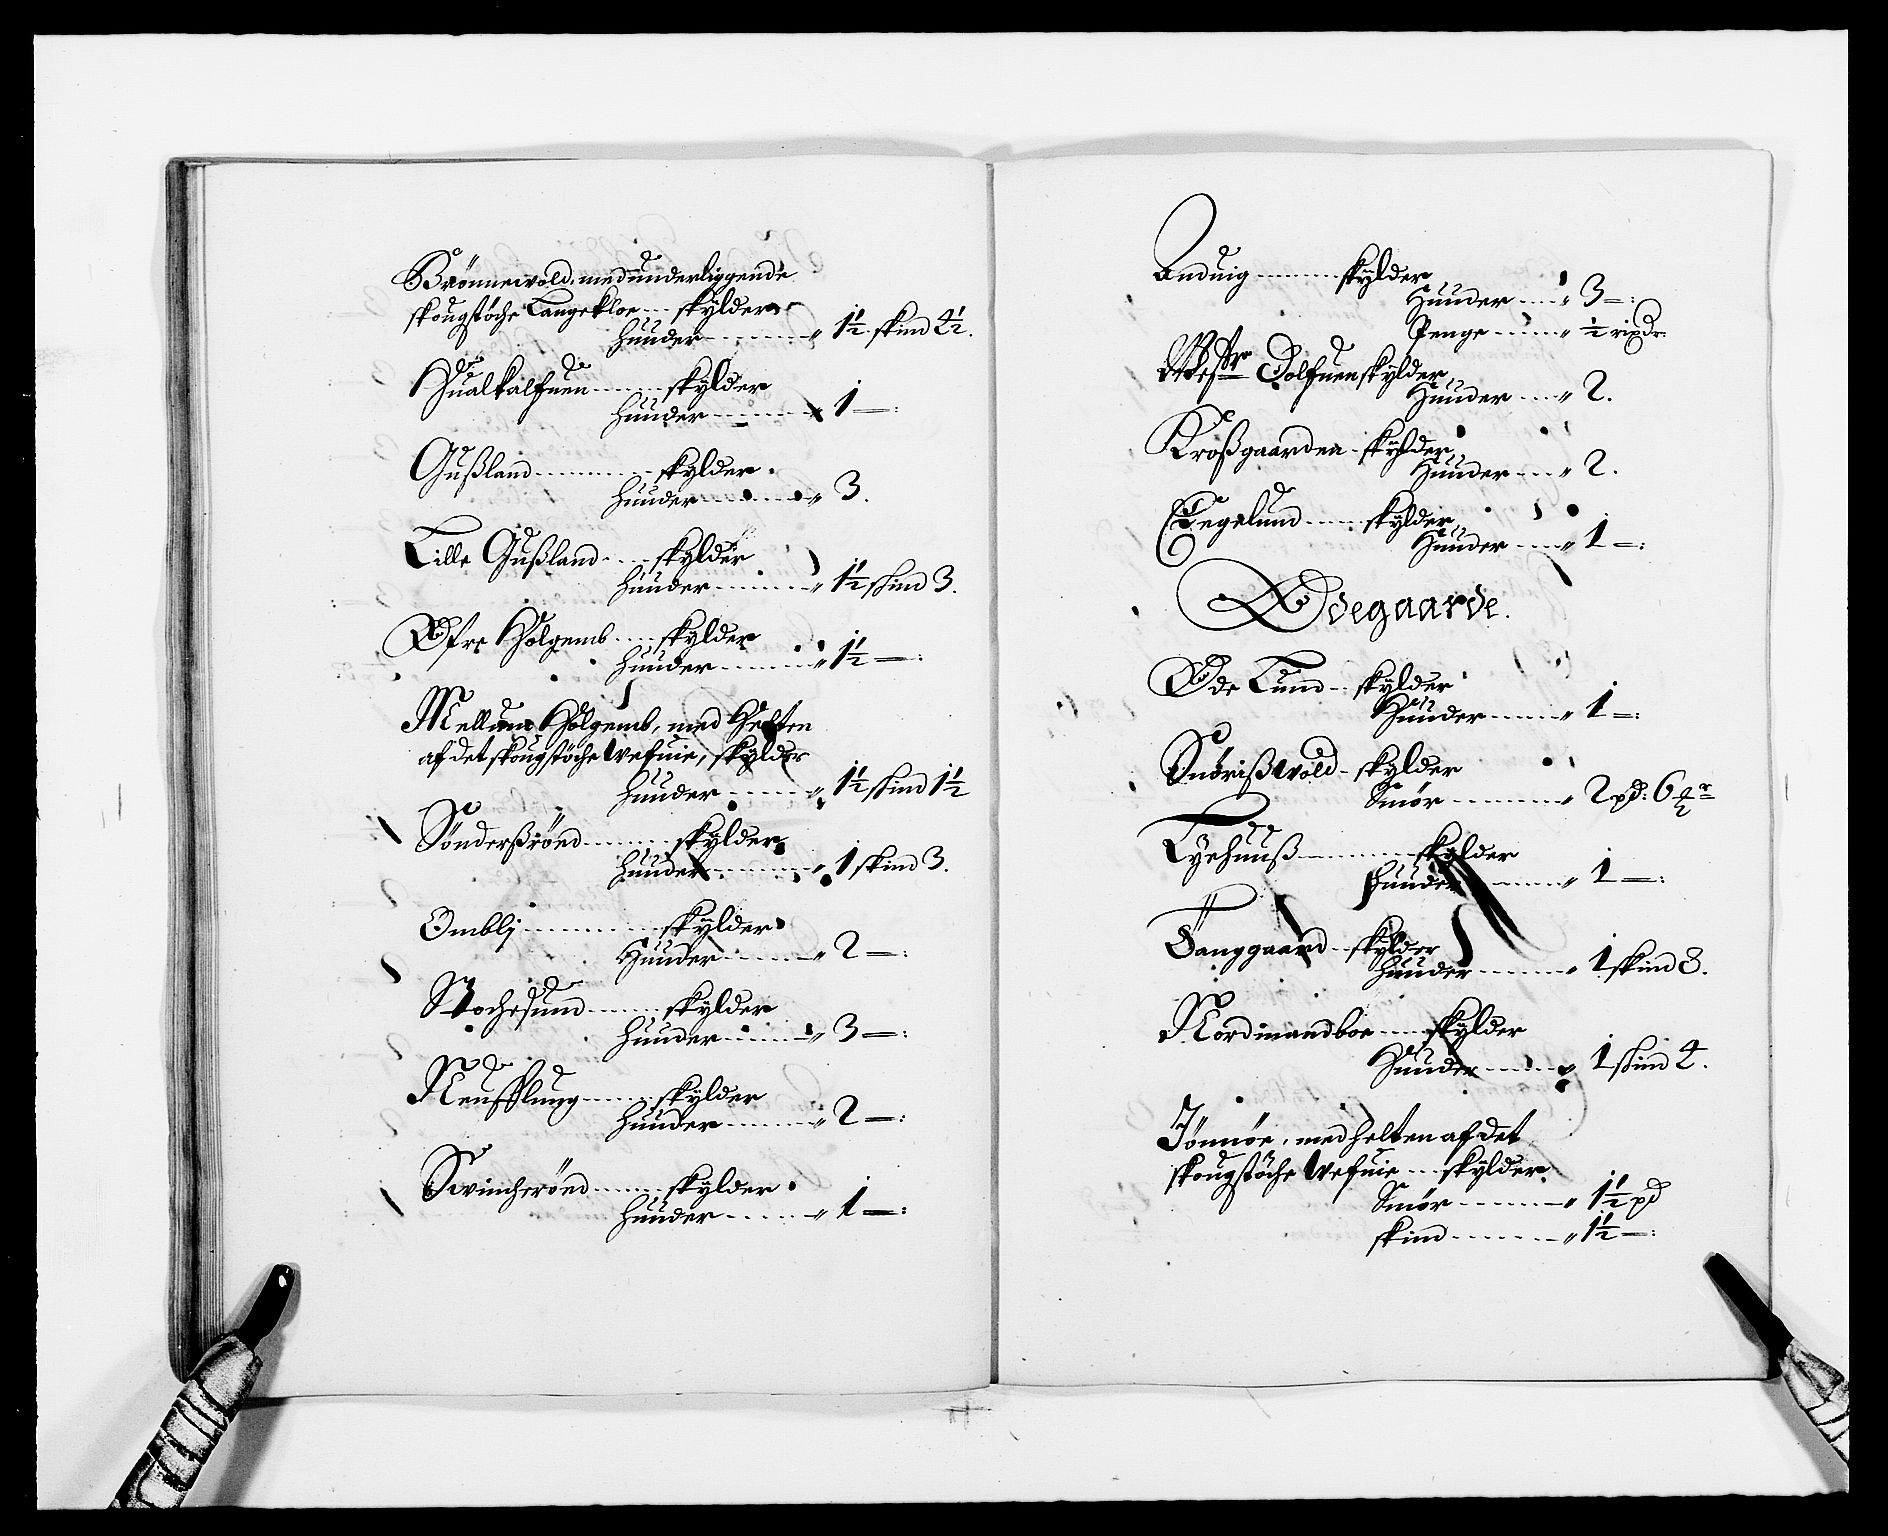 Brönnewold, med underliggende
skougstöche Langekloe ... skylder
huuder ........ „ 1½ skind 4½.
Hualkalfuen ........ skylder
huuder ........ „ 1 —:
Gußland ........ skylder
huuder ........ „ 3.
Lille Gußland .... skylder
huuder ........ „ 1½ skind 3.
Øfre Holgemb .... skylder
huuder ........ „ 1½ —:
Mellum Holgemb, med Helften
af det skougstöche Wefuie, skylder
huuder ........ „ 1½ skind 1½
Sönderßrönd ........ skylder
huuder ........ „ 1 skind 3.
Omblj ........ skylder
Huuder ........ „ 2 —:
Stochesund ........ skylder
huuder ........ „ 3 —:
skylder
huuder ........ „ 2 —:
Swincherönd ........ skylder
huuder ........ „ 1 —:
Anduig ........ skylder
Huuder .... „ 3 —:
Penge ...... „ ½ rixdr
Westr Dolfuen skylder
Huuder .... „ 2.
Kroßgaarden - skylder
Huuder .... „ 2.
Tegelund ...... skylder
Huuder .... „ 1 —:
Ødegaarde.
Øde Lund - skylder
Huuder ...... „ 1 —:
Snörißwold - skylder
Smör ........ „ 2 pd: 6
Lyehuuß ........ skylder
huuder ........ „ 1 —:
Tanggaard - skylder
huuder ........ „ 1 skind 3.
Nordmandboe .... skylder
Huuder ...... „ 1 skind 4.
Jönnöe, med helten af det
skougstöche Wefuie ... skylder
Smör ........ „ 1½ pd
skind ........ „ 1½ —: